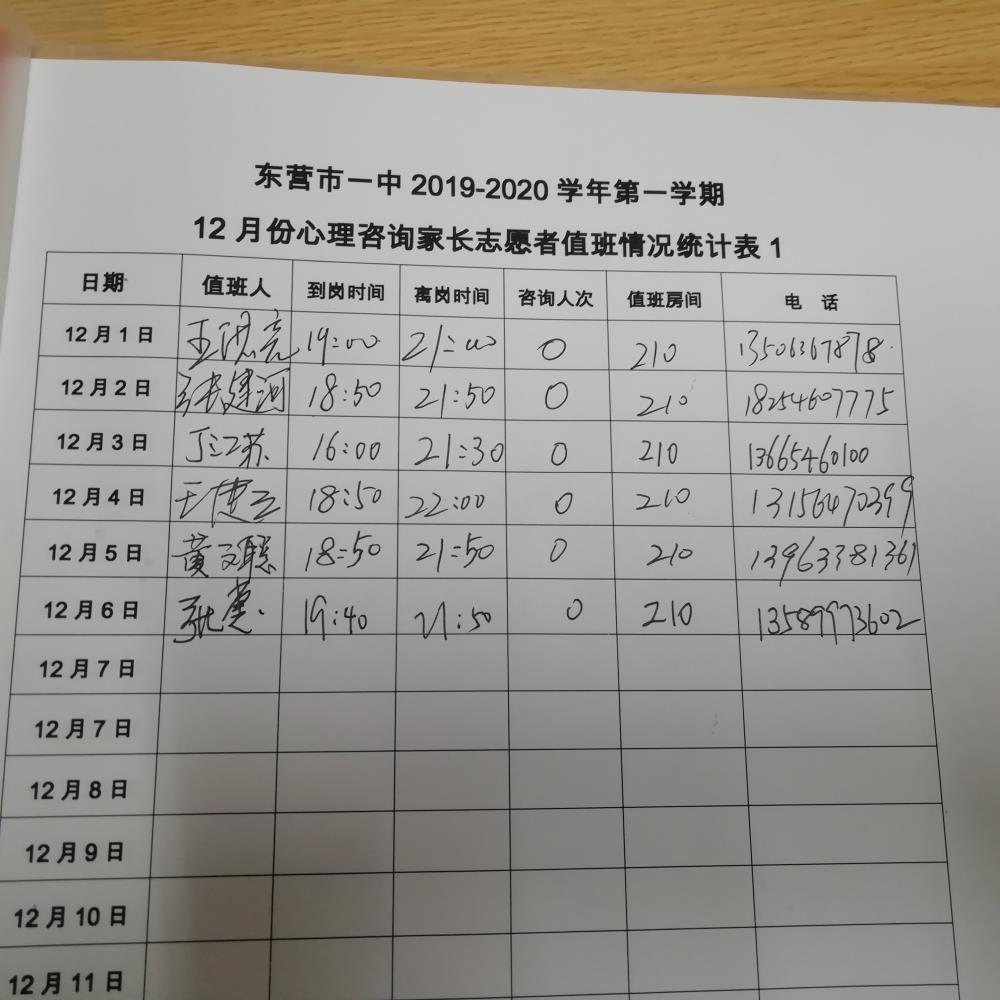 东营市一中 2019-2020 学年第一学期
12 月份心理咨询家长志愿者值班情况统计表 1
日期 值班人 到岗时间 离岗时间 咨询人次 值班房间 电 话
12 月 1 日 王洪亮 19:00 21:00 0 210 13506367878
12 月 2 日 张建河 18:50 21:50 0 210 18254607775
12 月 3 日 丁江苏 16:00 21:30 0 210 13665460100
12 月 4 日 18:50 22:00 0 210 13156470399
12 月 5 日 黄文聪 18:50 21:50 0 210 13963381361
12 月 6 日 19:40 21:50 0 210 13589973602
12 月 7 日
12 月 7 日
12 月 8 日
12 月 9 日
12 月 10 日
12 月 11 日